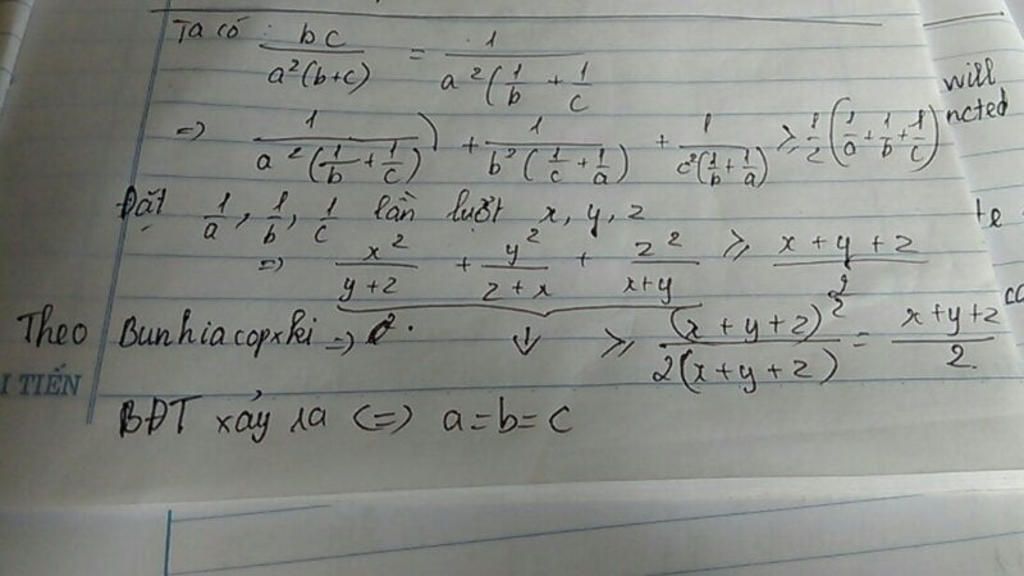 Ta có : \frac{bc}{a^2(b+c)} = \frac{1}{a^2(\frac{1}{b} + \frac{1}{c}}
will
=> \frac{1}{a^2(\frac{1}{b} + \frac{1}{c})}) + \frac{1}{b^2(\frac{1}{c} + \frac{1}{a})} + \frac{1}{c^2(\frac{1}{b} + \frac{1}{a})} ≥ \frac{1}{2}(\frac{1}{a} + \frac{1}{b} + \frac{1}{c})
ncted
Đặt \frac{1}{a}, \frac{1}{b}, \frac{1}{c} lần lượt x, y, z
te
=> \frac{x^2}{y+z} + \frac{y^2}{z+x} + \frac{z^2}{x+y} ≥ \frac{x+y+z}{2}
Theo Bunhiacopxki => ↓ ≥ \frac{(x+y+z)^2}{2(x+y+z)} = \frac{x+y+z}{2}
I TIẾN
BĐT xảy ra <=> a=b=c